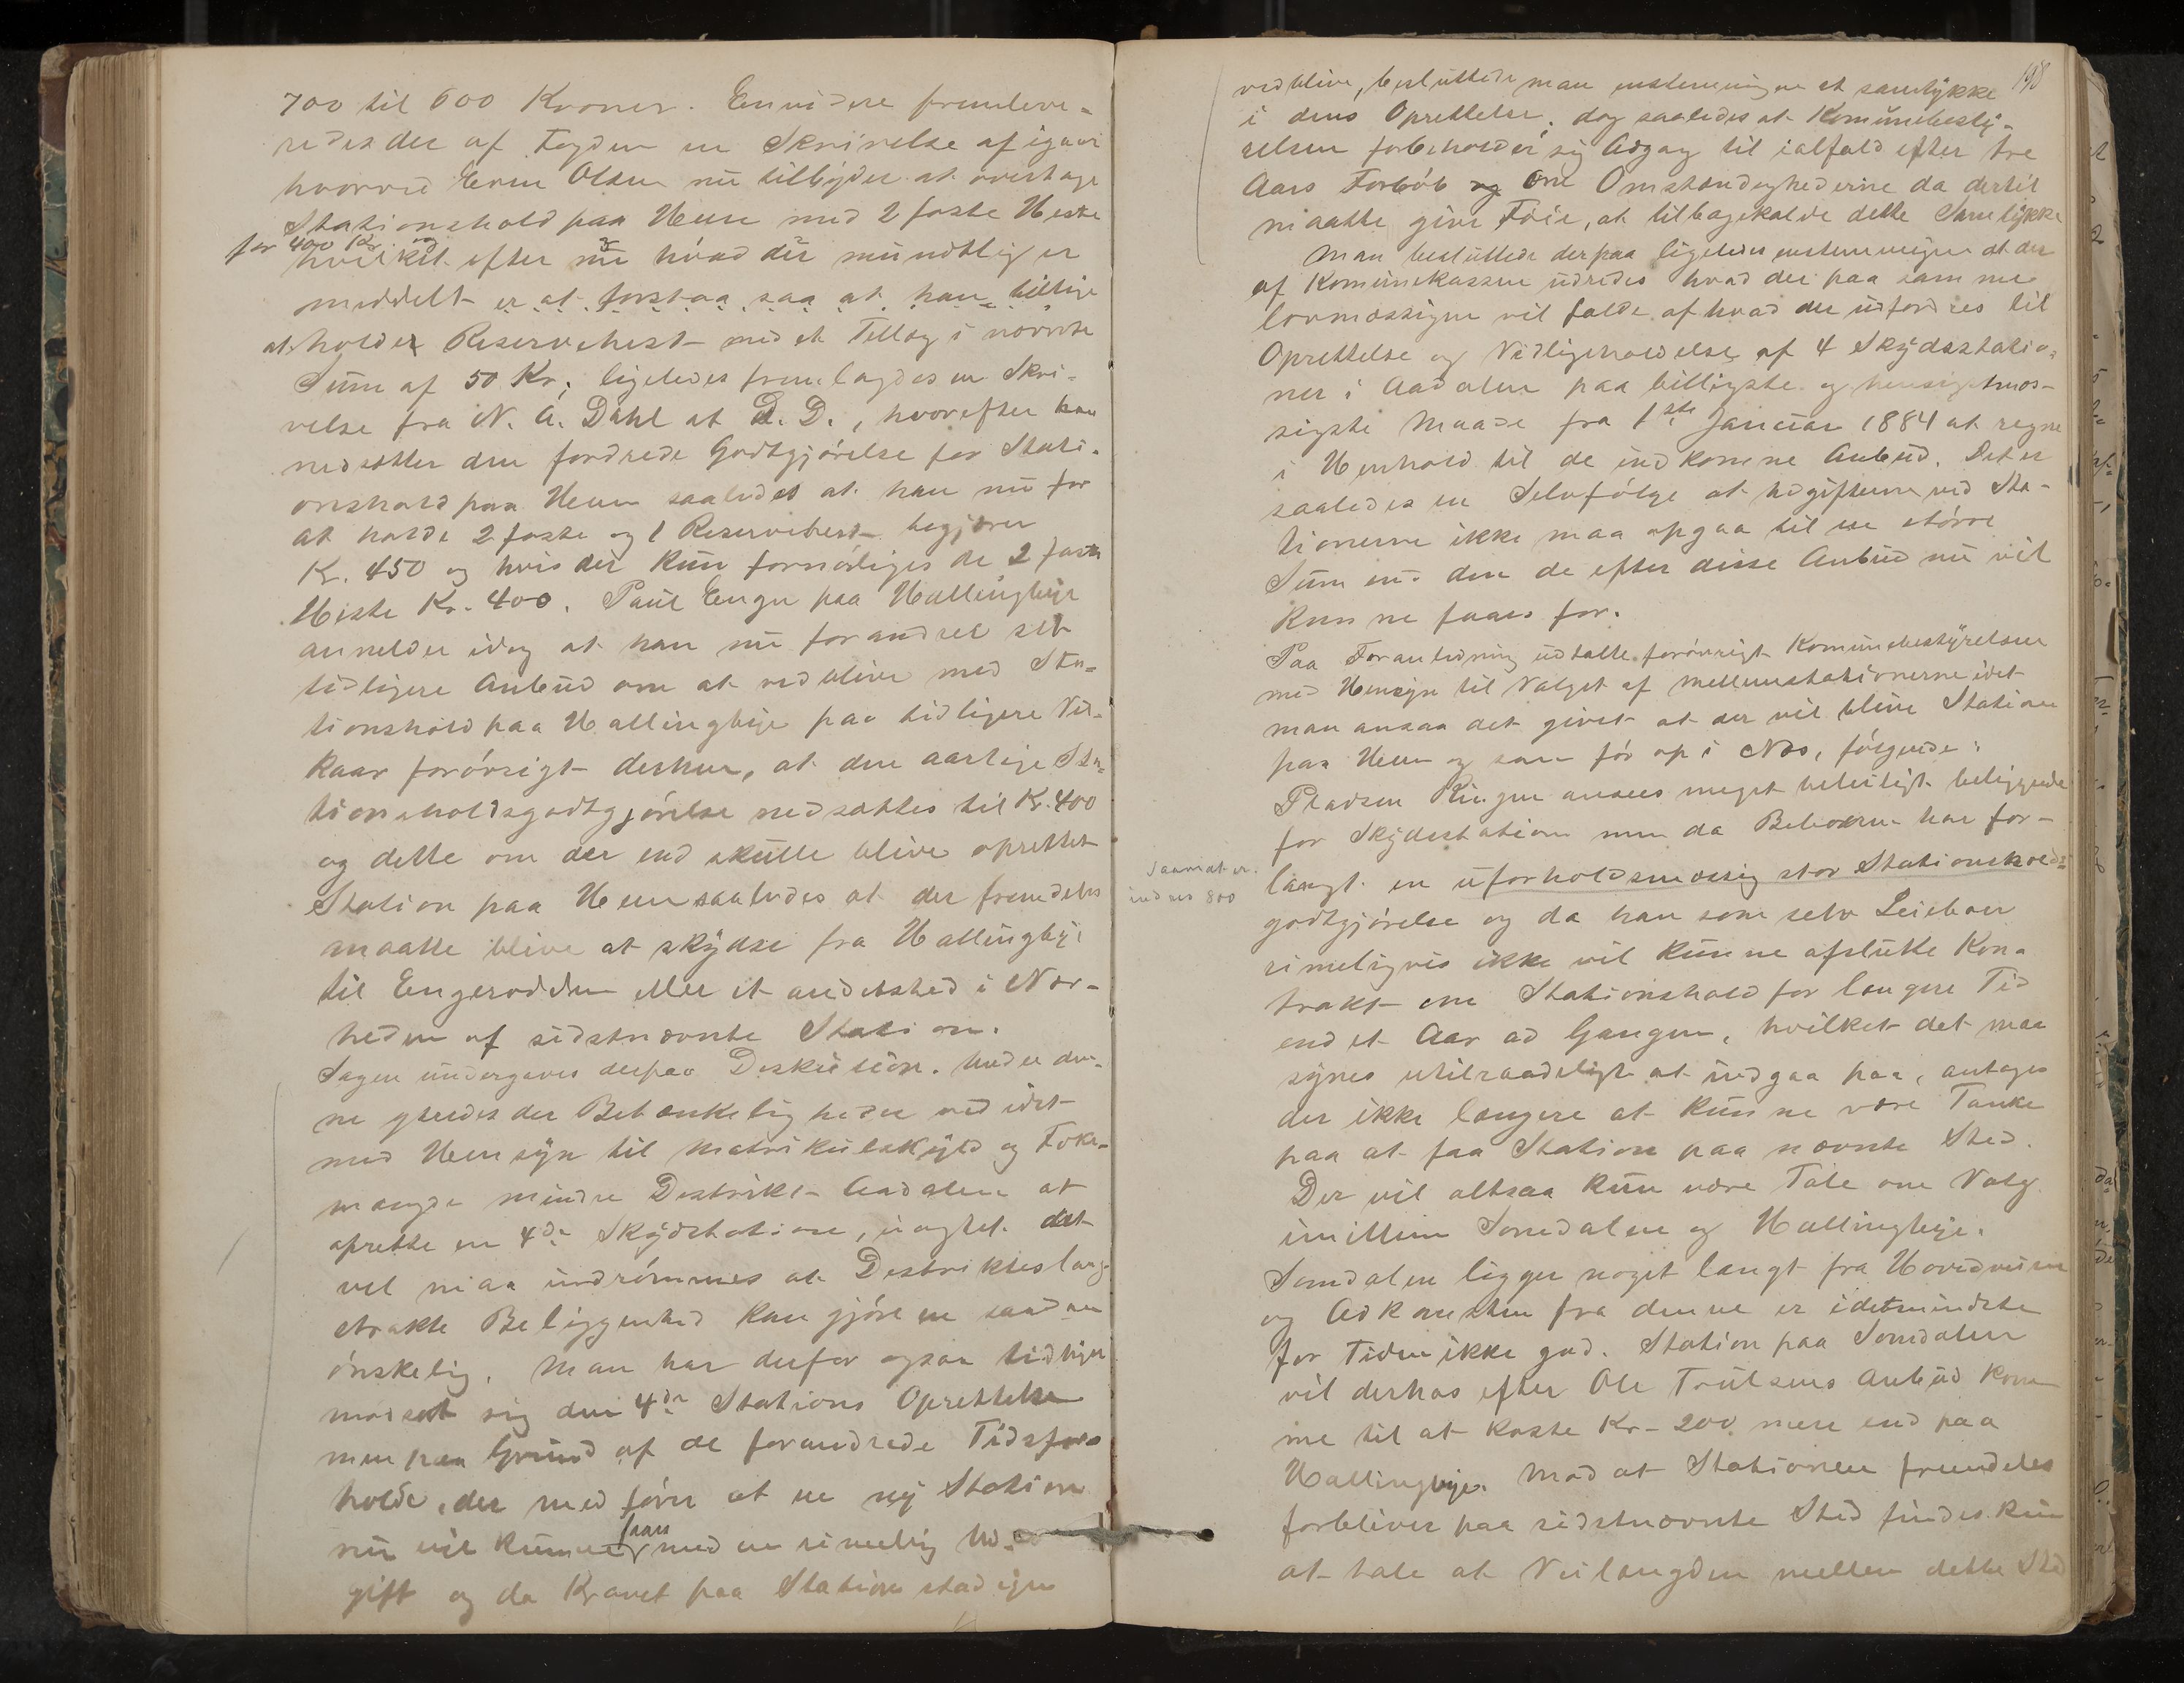 700 til 600 Kroner. Envidere fremleve-
redes der af Fogden en Skrivelse af igaar
hvorved Even Olsen nu tilbyder at overtage
Stationshold paa Heen med 2 faste Heste
for 400 Kr. og
hvilket efter nu hvad der mundtlig er
meddelt er at forstaa saa at han billige
at holder Reservehest med et Tillæg i nævnte
Sum af 50 Kr; ligeledes fremlagdes en Skri-
velse fra N. A. Dahl at D. D., hvorefter han
nedsætter den fordrede Godtgjörelse for Stati-
onshold paa Heen saaledes at han nu for
at holde 2 faste og 1 Reservehest begjærer
Kr. 450 og hvis der kun fornödiges de 2 faste
Heste Kr. 400. Paul Engen paa Hallingbye
anmelder idag at han nu forandrer sit
tidligere Anbud om at vedblive med Sta-
tionshold paa Hallingbye paa tidligere Vil-
kaar forövrigt derhen, at den aarlige Sta-
tionsholdsgodtgjörelse nedsættes til Kr. 400
og dette om der end skulle blive oprettet
Station paa Heen saaledes at der fremdeles
maatte blive at skydse fra Hallingbye
til Engerodden eller et andetsted i Nær-
heden af sidstnævnte Station.
Sagen undergaves derpaa Diskusion. Under den-
ne ytredes der Betænkeligheder ved idet
med Hensyn til Matrikulskyld og Folke-
mængde mindre Distrikt Aadalen at
oprette en 4de Skydsstation, uagtet det
vel maa indrömmes at Distriktets lang-
strakte Beliggenhed kan gjöre en saadan
önskelig. Man har derfor ogsaa tidligere
modsat sig den 4de Stations Oprettelse
men paa Grund af de forandrede Tidsfor-
holde, der medförer at en ny Station
faaes
nu vil kunne med en rimelig Ud-
gift og da Kravet paa Station stadigen
198
vedblive, besluttede man enstemmigen at samtykke
i dens Oprettelse, dog saaledes at Komunebesty-
relsen forbeholder sig Adgang til ialfald efter tre
Aars Forlöb og om Omstændighederne da dertil
maatte give Föie, at tilbagekalde dette Samtykke
Man besluttede derpaa ligeledes enstemmigen at der
af Komunekassen udredes hvad der paa samme
lovmæssigen vil falde af hvad der udfordres til
Oprettelse og Vedligeholdelse af 4 Skydsstatio-
ner i Aadalen paa billigste og hensigtmæs-
sigste Maade fra 1ste Januar 1884 at regne
i Henhold til de indkomne Anbud. Det er
saaledes en Selvfölge at Udgifterne ved Sta-
tionerne ikke maa opgaa til en större
Sum end den de efter disse Anbud nu vil
kunne faaes for.
Paa Foranledning udtalte forövrigt Komunebestyrelsen
med Hensyn til Valget af Mellemstationerne idet
man ansaa det givet at der vil blive Station
paa Heen og som för op i Næs, fölgende:
Pladsen Ringen ansees meget beleiligt beliggende
for Skydsstation men da Beboeren har for-
langt en uforholdsmæssig stor Stationsholds-
Saavidt er
indres 800
godtgjörelse og da han som selv Leieboer
rimeligvis ikke vil kunne afslutte Kon-
trakt om Stationshold for længere Tid
end et Aar ad Gangen, hvilket det maa
synes utilraadeligt at indgaa paa, antages
der ikke længere at kunne være Tanke
paa at faa Station paa nævnte Sted.
Der vil altsaa kun være Tale om Valg
imellem Somdalen og Hallingbye.
Somdalen ligger noget langt fra Hovedveien
og Adkomsten fra denne er idetmindste
for Tiden ikke god. Station paa Somdalen
vil derhos efter Ole Trulsens Anbud kom-
me til at koste Kr. 200 mere end paa
Hallingbye. Mod at Stationen fremdeles
forbliver paa sidstnævnte Sted findes kun
at tale at Veilængden mellem dette Sted